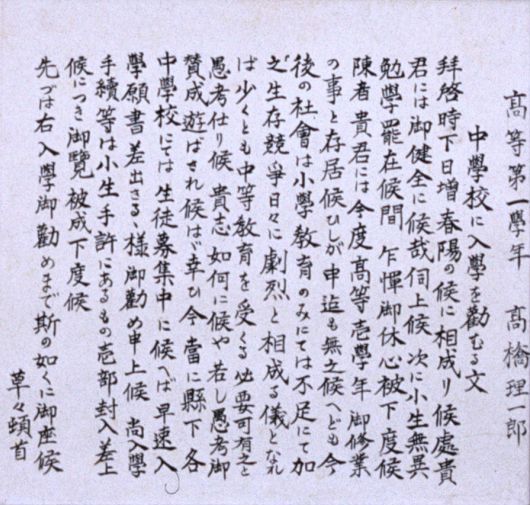 高等第一學年　高橋理一郎
中學校に入學を勸むる文
拜啓時下日增春陽の候に相成り候處貴
君には御健全に候哉伺上候 次に小生無異
勉學罷在候間 乍憚御休心被下度候
陳者貴君には今度高等壱學年御修業
の事と存居候ひしが申迄も無之候へども今
後の社會は小學教育のみにては不足にて加
之生存競爭日々に劇烈と相成る儀となれ
ば少くとも中等教育を受くる必要可有之と
愚考仕り候 貴志如何に候や若し愚考御
賛成遊ばされ候はゞ幸ひ今當に縣下各
中學校にては生徒募集中に候へば早速入
學願書差出さるゝ樣御勸め申上候 尚入學
手續等は小生手許にあるもの壱部封入差上
候につき御覽被成下度候
先づは右入學御勸めまで斯の如くに御座候
草々頓首